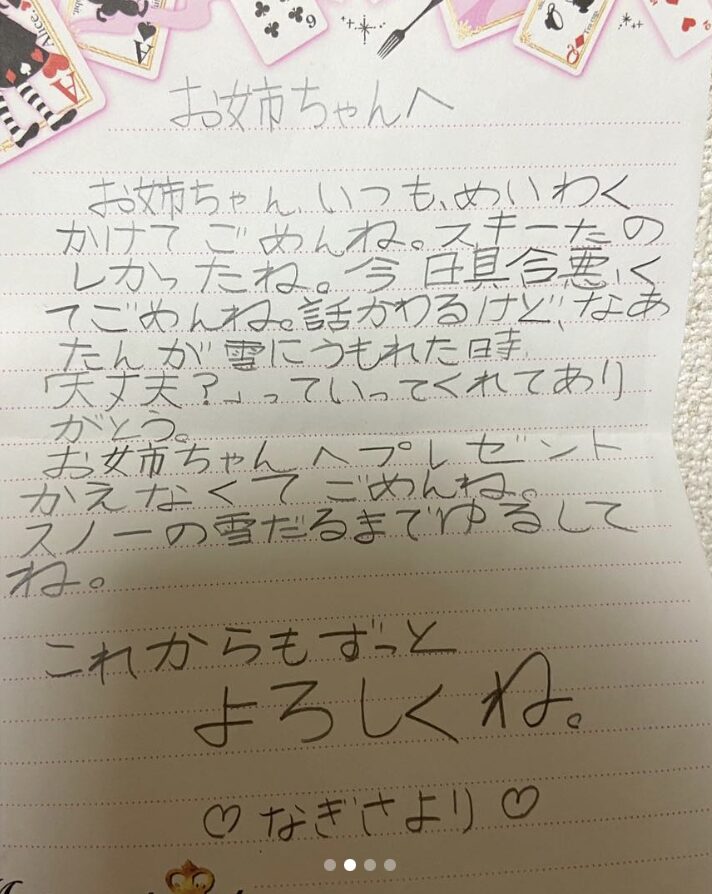 Alice.
お姉ちゃんへ
お姉ちゃん、いつも、めいわく
かけてごめんね。スキーたの
しかったね。今日具合悪く
てごめんね。話かわるけど、なぁ
たんが雪にうもれた時、
「大丈夫？」っていってくれてあり
がとう。
お姉ちゃんへプレゼント
かえなくてごめんね。
スノーの雪だるまでゆるして
ね。
これからもずっと
よろしくね。
♡なぎさより♡